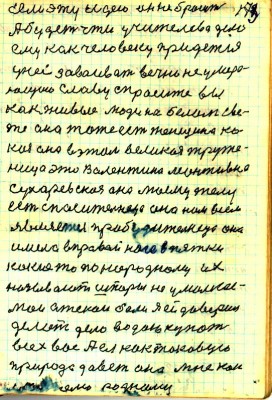 семя эту идею она не бросит 173
А будет сти учителева дело
ему как человеку придется
у ней завоиват вечно не умера
ющую славу спросите вы
как живые люди на белом све
те она тоже ест женщина ка
кая она в этом великая труже
ница это Валентина Леонтивна
Сухаревская она моему телу
ест спасительница она нам всем
является прабедительница она
имела в правой ноге в пятки
какие то по народному их
называют шпоры не умалкае
мои атакои боли я ей доверяю
делат дело водою купат
всех вас Я ей как таковую
природа давет она мне как
ему родному